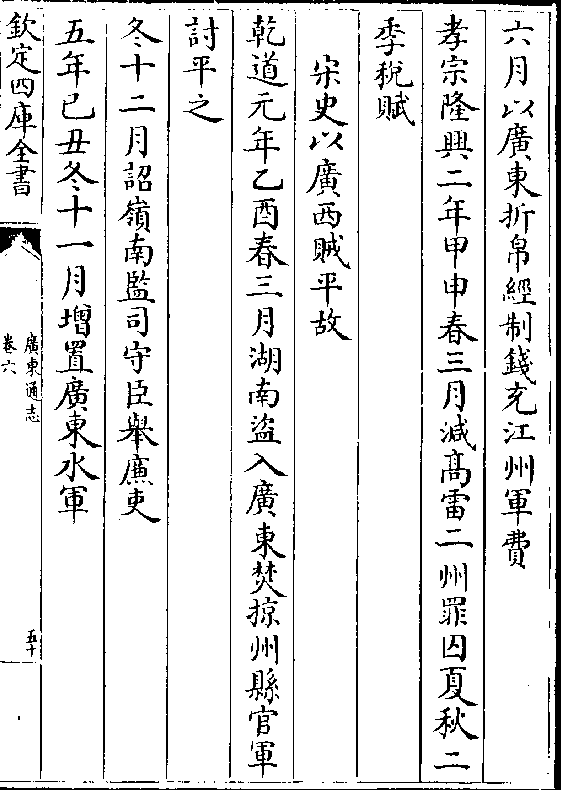 六月以廣東折帛經制錢充江州軍費
孝宗隆興二年甲申春三月減髙雷二州罪囚夏秋二
季稅賦
宋史以廣西賊平故
乾道元年乙酉春三月湖南盜入廣東焚掠州縣官軍
討平之
冬十二月詔嶺南監司守臣舉廉吏
五年己丑冬十一月增置廣東水軍
欽定四庫全書
廣東通志
卷六
五十